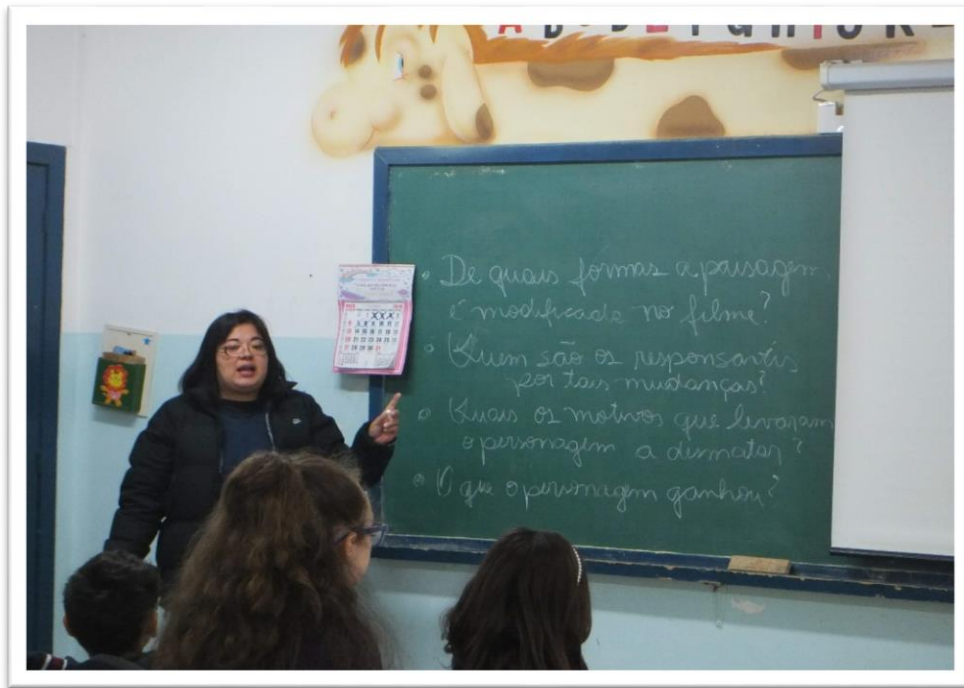 A B C D E F G H I J K
• De quais formas a paisagem
é modificada no filme?
• Quem são os responsavéis
por tais mudanças?
• Quais os motivos que levaram
o personagem a desmatar?
• O que o personagem ganhou?